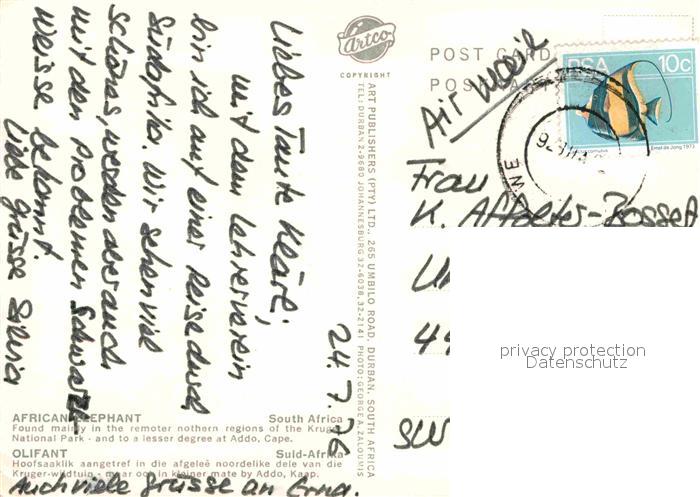 Artco
COPYRIGHT
POST CARD
Air Mail
RSA 10c
Ernst de Jong 1973
24.7.76
Liebes Tante Kläre,
mit dem Lehrerverein
bin ich auf einer Reise durch
Südafrika. Wir sehen viel
schönes, werden aber auch
mit den Problemen Schwarz-
weiss bekannt.
Liebe Grüsse Sylvia
Auch viele Grüsse an Erna.
Frau
K. Affolter-Bosset
ART PUBLISHERS (PTY) LTD., 265 UMBILO ROAD, DURBAN, SOUTH AFRICA
TEL: DURBAN 2-9680 JOHANNESBURG 32-6038, 32-2141 PHOTO: GEORGE A. ZALOUMIS
AFRICAN ELEPHANT South Africa
Found mainly in the remoter nothern regions of the Kruger
National Park - and to a lesser degree at Addo, Cape.
OLIFANT Suid-Afrika
Hoofsaaklik aangetref in die afgeleë noordelike dele van die
Kruger-wildtuin - maar ook in kleiner mate by Addo, Kaap.
privacy protection
Datenschutz